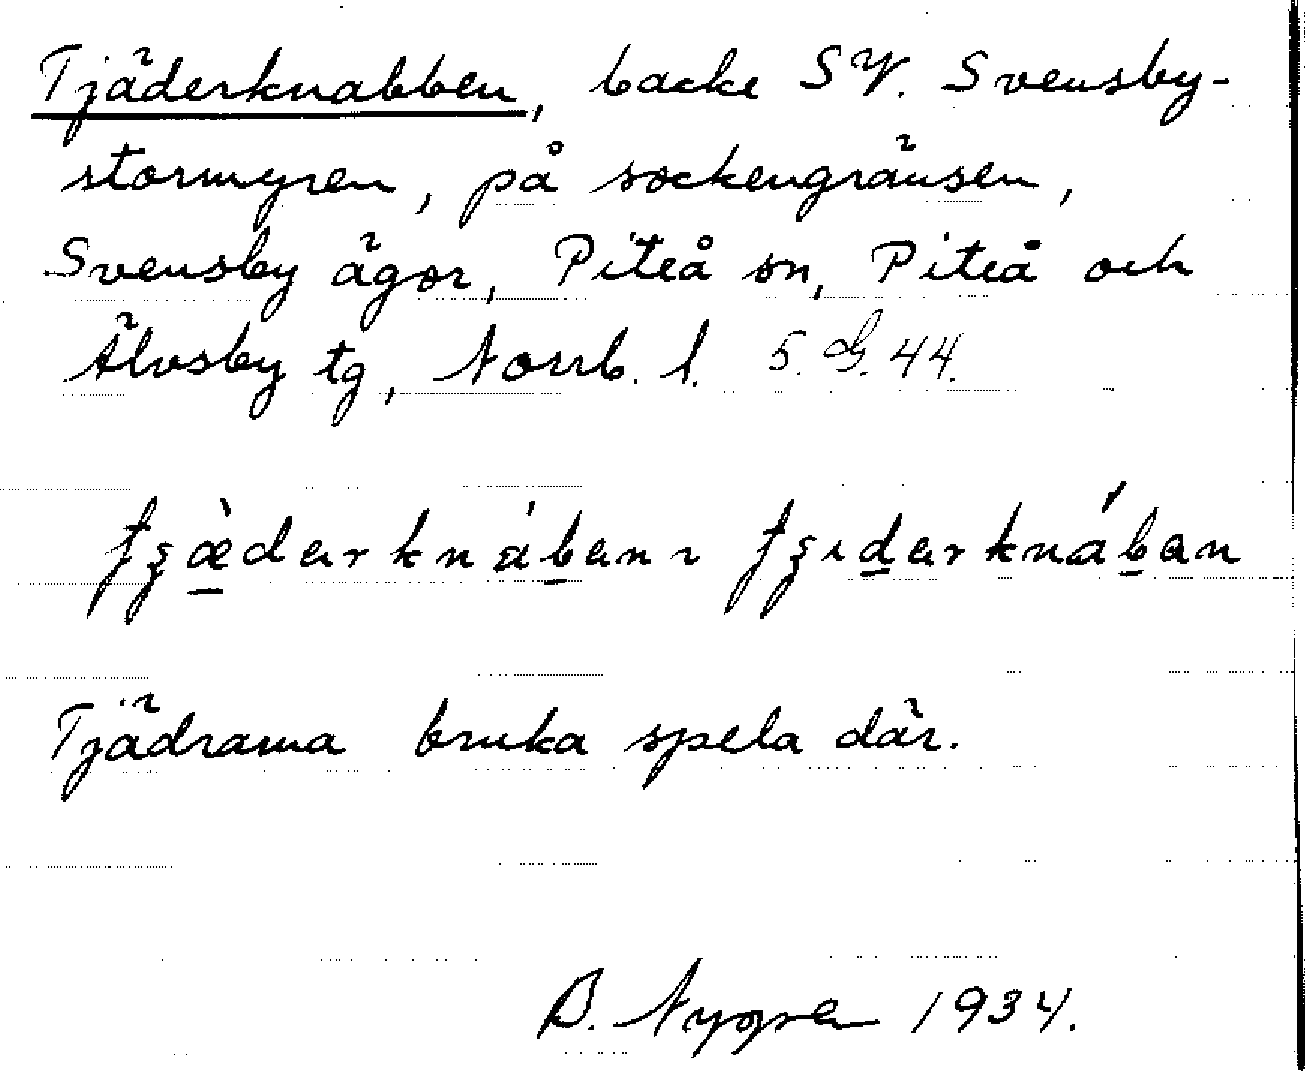 Tjäderknabben, backe SV. Svensby-
stormyren, på sockengränsen,
Svensby ägor, Piteå sn, Piteå och
Älvsby tg, Norrb. l. 5. G. 44.
Tjädrarna bruka spela där.
B. Nygren 1934.